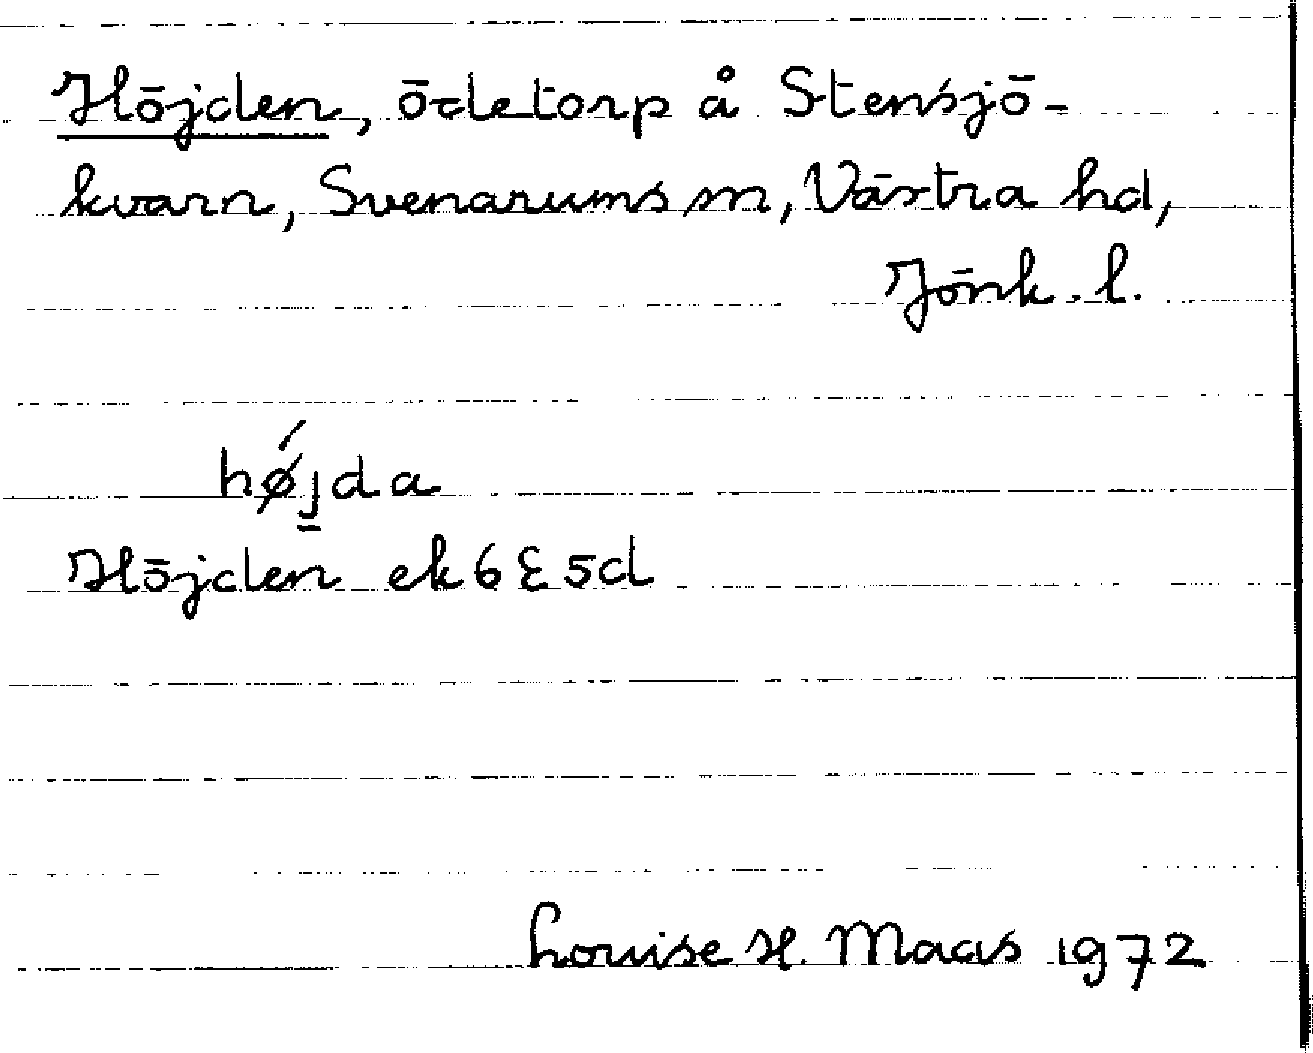 Höjden, ödetorp å Stensjö-
kvarn, Svenarums sn, Västra hd,
Jönk. l.
hǿj̲da
Höjden ek 6 E 5d
Louise H. Maas 1972